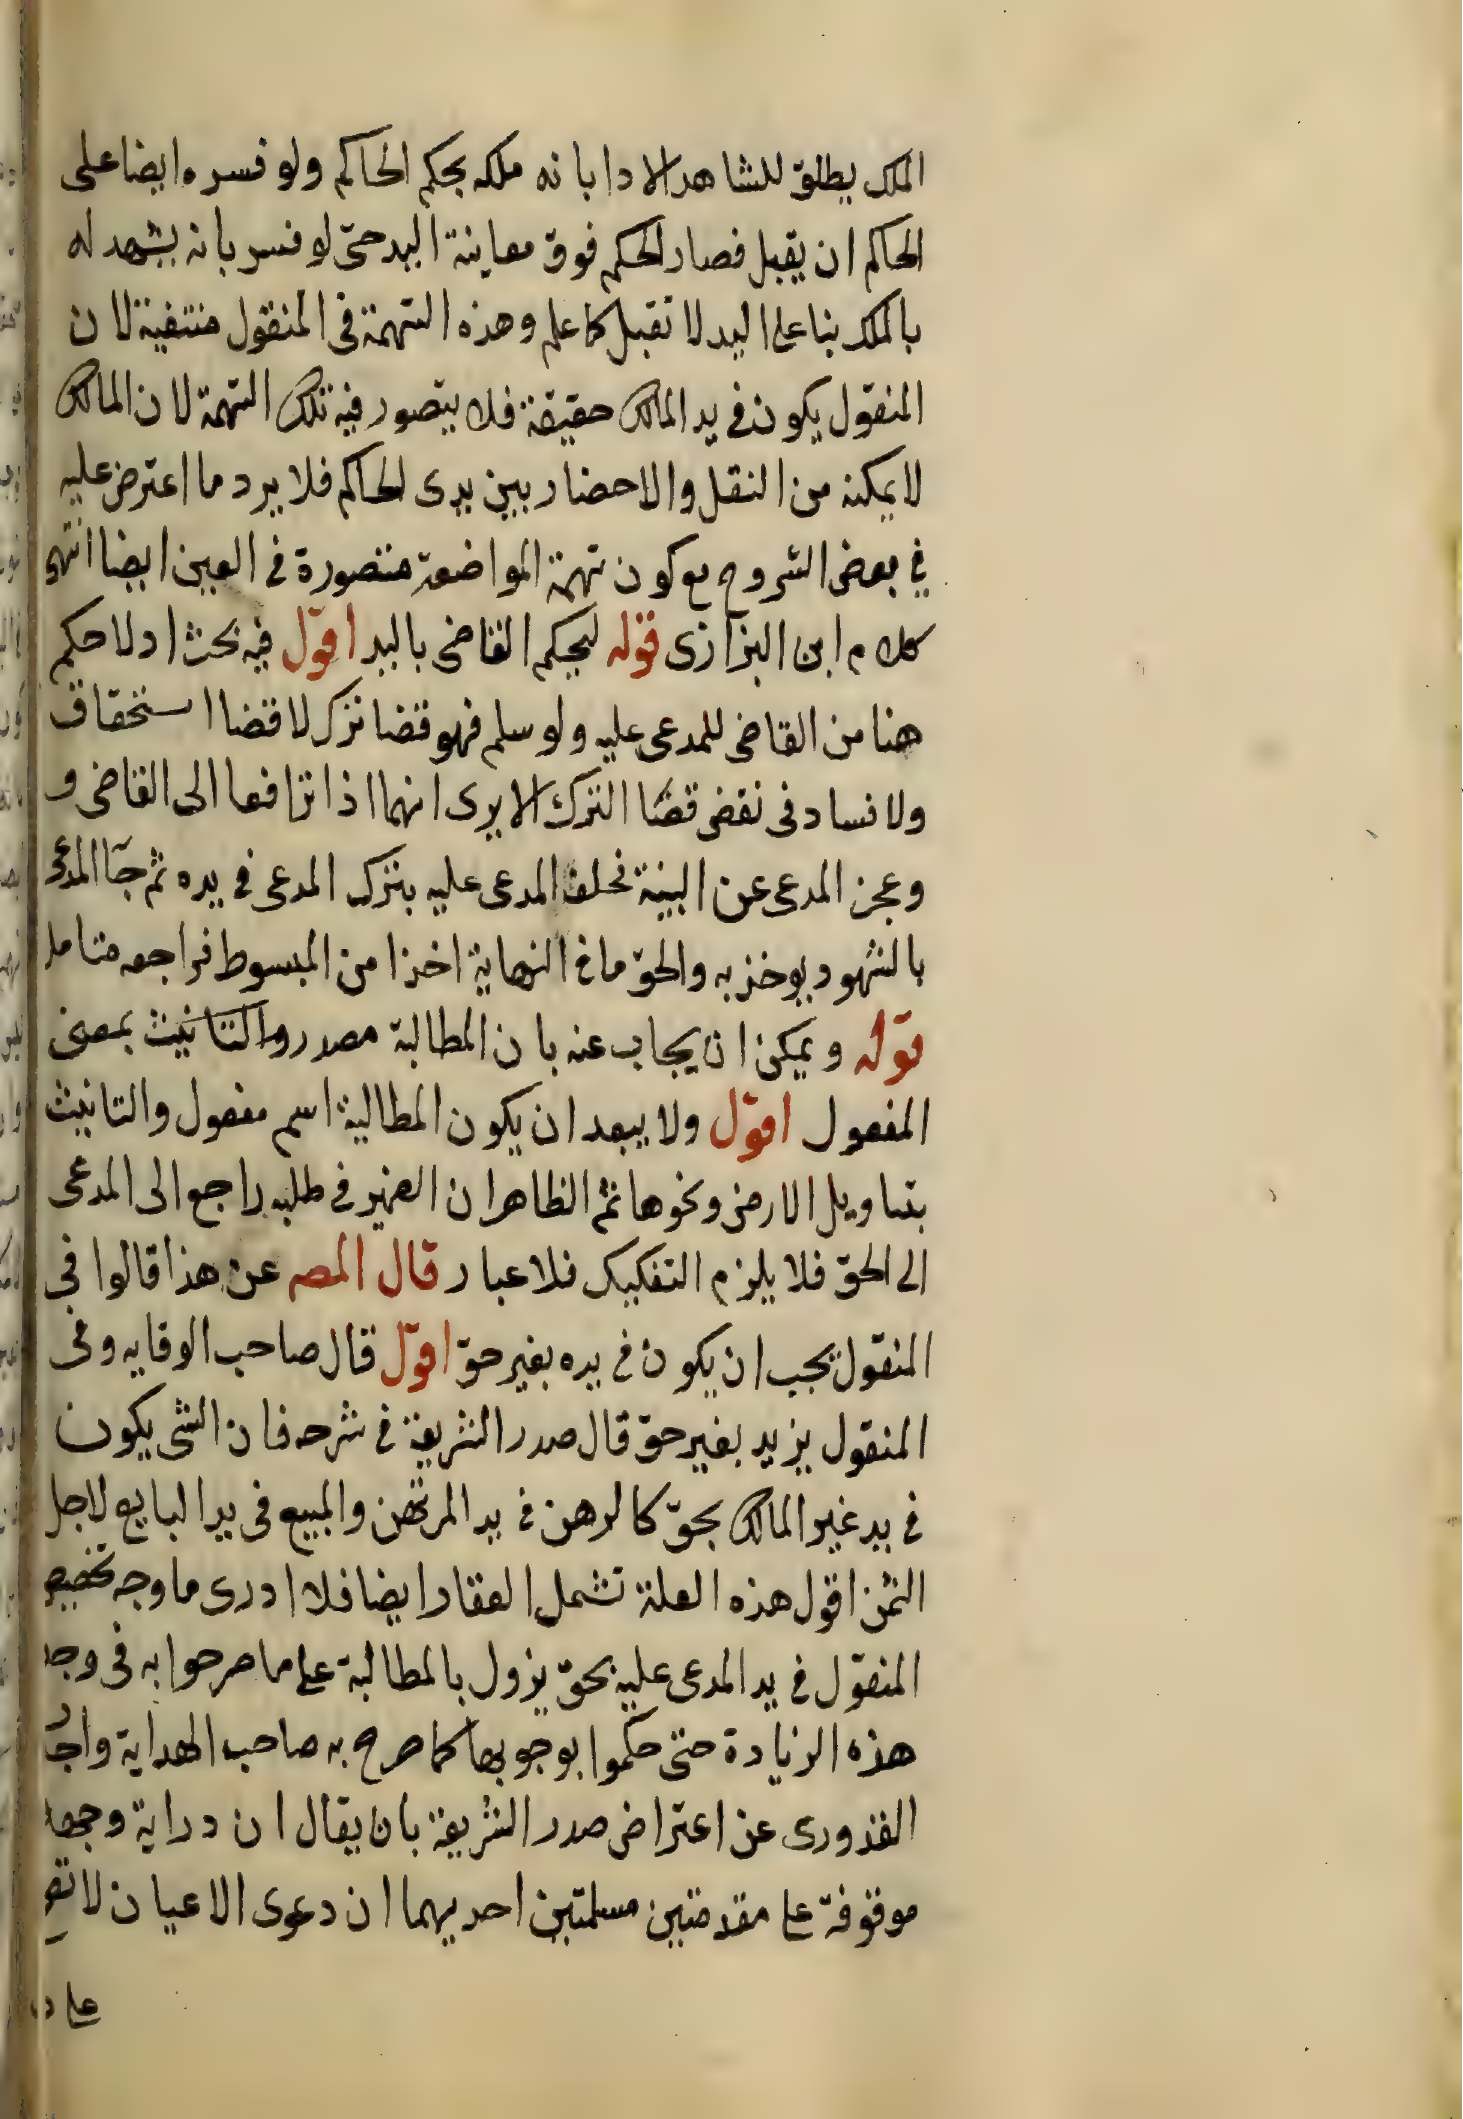 الملك يطلق للشاهد الادا بانه ملكه بحكم الحاكم ولو فسره ايضا على
الحاكم ان يقبل فصار الحكم فوق معاينة اليد حتى لو فسر بانه يشهد له
بالملك بنا على اليد لا تقبل كما علم وهذه التهمة في المنقول منتفية لان
المنقول يكون في يد المالك حقيقة فلا يتصور فيه تلك التهمة لان المالك
لا يمكنه من النقل والاحضار بين يدى الحاكم فلا يرد ما اعترض عليه
في بعض الشروح مع كون تهمة المواضعة متصورة في العين ايضا انتهى
كلام ابن البزازى قوله ليحكم القاضى باليد اقول فيه بحث اد لا حكم
هنا من القاضى للمدعى عليه ولو سلم فهو قضا ترك لا قضا استحقاق
ولا فساد في نقض قضا الترك الا يرى انهما اذا ترافعا الى القاضى و
وعجز المدعى عن البينة فحلف المدعى عليه بترك المدعى في يده ثم جا المدعى
بالشهود يوخذ به والحق ما في النهاية اخذا من المبسوط فراجعه متاملا
قوله ويمكن ان يجاب عنه بان المطالبة مصدر والتانيث بمعنى
المفعول اقول ولا يبعد ان يكون المطالبة اسم مفعول والتانيث
بتاويل الارض ونحوها ثم الظاهر ان الضمير في طلبه راجع الى المدعى
الى الحق فلا يلزم التفكيك فلا عبار قال المص عن هذا قالوا في
المنقول يجب ان يكون في يده بغير حق اقول قال صاحب الوقايه وفى
المنقول يزيد بغير حق قال صدر الشريعة في شرحه فان الشى يكون
في يد غير المالك بحق كالرهن في يد المرتهن والمبيع في يد البايع لاجل
الثمن اقول هذه العلة تشمل العقار ايضا فلا ادرى ما وجه تخصيص
المنقول في يد المدعى عليه بحق يزول بالمطالبة على ما صرحوا به في وجه
هذه الزيادة حتى حكموا بوجوبها كما صرح به صاحب الهداية واجاب
القدورى عن اعتراض صدر الشريعة بان يقال ان دراية وجهه
موقوفة على مقدمتين مسلمتين احديهما ان دعوى الاعيان لا تصح
على